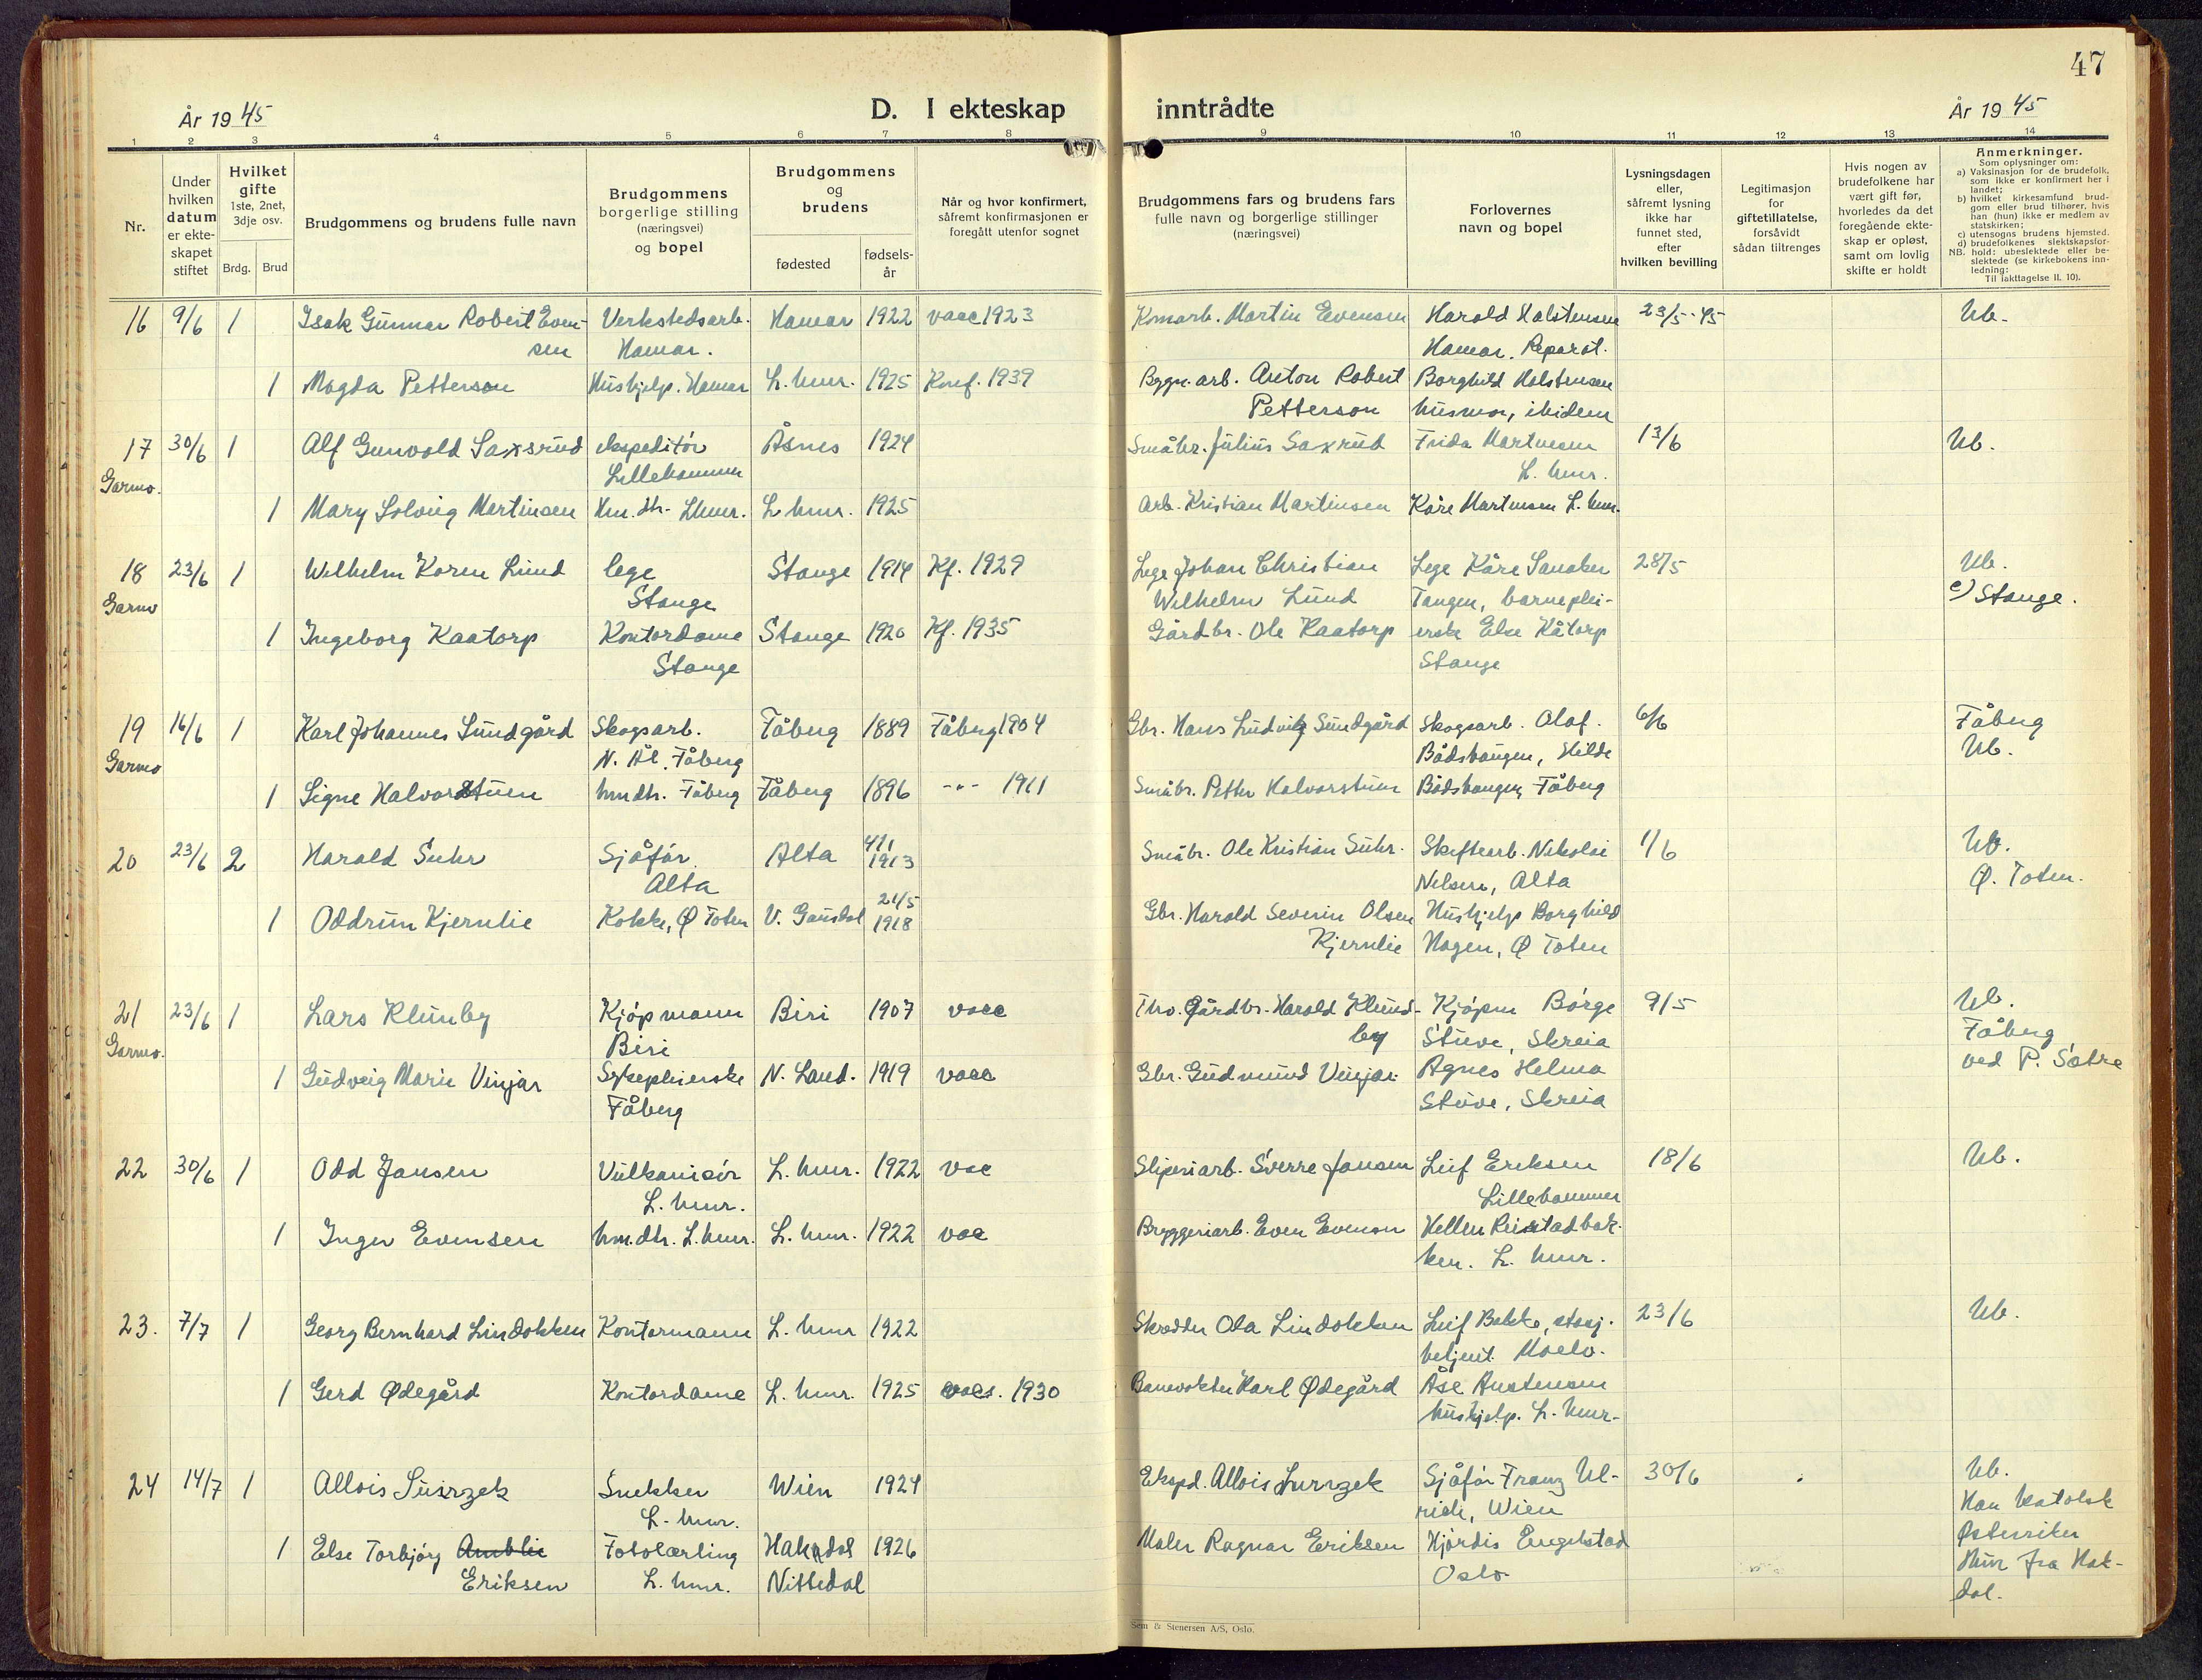 47
År 1945
D. I ekteskap
inntrådte
År 1945
1 2 3 4 5 6 7 8 9 10 11 12 13 14
Nr.
Under hvilken datum er ekteskapet stiftet
Hvilket gifte 1ste, 2net, 3dje osv.
Brdg. Brud
Brudgommens og brudens fulle navn
Brudgommens borgerlige stilling (næringsvei) og bopel
Brudgommens og brudens
fødested
fødselsår
Når og hvor konfirmert, såfremt konfirmasjonen er foregått utenfor sognet
Brudgommens fars og brudens fars fulle navn og borgerlige stillinger (næringsvei)
Forlovernes navn og bopel
Lysningsdagen eller, såfremt lysning ikke har funnet sted, efter hvilken bevilling
Legitimasjon for giftetillatelse, forsåvidt sådan tiltrenges
Hvis nogen av brudefolkene har vært gift før, hvorledes da det foregående ekteskap er opløst, samt om lovlig skifte er holdt
Anmerkninger.
Som oplysninger om:
a) Vaksinasjon for de brudefolk, som ikke er konfirmert her i landet;
b) hvilket kirkesamfund brudgom eller brud tilhører, hvis han (hun) ikke er medlem av statskirken;
c) utensogns brudens hjemsted.
d) brudefolkenes slektskapsforhold: ubeslektede eller beslektede (se kirkebokens innledning:
NB.
Til iakttagelse II. 10).
16 9/6 1 Isak Gunnar Robert Even- Verkstedsarb. Hamar 1922 vacc 1923 Komarb. Martin Evensen Harald Halstensen 23/5-45 Ub.
sen Hamar. Hamar. Reparat.
1 Magda Petterson Hushjelp. Hamar L.hmr. 1925 Konf. 1939 Bygn. arb. Anton Robert Borghild Halstensen
Petterson husmor, ibidem
17 30/6 1 Alf Gunvald Saxsrud ekspeditør Åsnes 1924 Småbr. Julius Saxrud Frida Martinsen 13/6 Ub.
Garmo. Lillehammer L. hmr.
1 Mary Solveig Martinsen Hm. dtr. Lhmr. L hmr. 1925 Arb. Kristian Martinsen Kåre Martinsen L. hmr.
18 23/6 1 Wilhelm Koren Lund lege Stange 1914 Kf. 1929 Lege Johan Christian Lege Kåre Sanaker 28/5 Ub.
Garmo Stange Wilhelm Lund Tangen, barneplei- c) Stange.
1 Ingeborg Kaatorp Kontordame Stange 1920 Kf. 1935 Gårdbr. Ole Kaatorp erske Else Kåtorp
Stange Stange
19 16/6 1 Karl Johannes Sundgård Skogsarb. Fåberg 1889 Fåberg 1904 Gbr. Hans Ludvig Sundgård Skogsarb. Olaf 6/6 Fåberg
Garmo N. Ål. Fåberg Bådshaugen, Hilde Ub.
1 Signe Halvorstuen hmdtr. Fåberg Fåberg 1896 -"- 1911 Småbr. Petter Halvorstuen Bådshaugen, Fåberg
20 23/6 2 Harald Suhr Sjåfør. Alta 4/1 1913 Småbr. Ole Kristian Suhr. Skiftearb. Nikolai 1/6 Ub.
Alta Nilsen, Alta Ø. Toten.
1 Oddrun Kjernlie Kokke, Ø Toten V. Gausdal 24/5 1918 Gbr. Harald Severin Olsen Hushjelp Borghild
Kjernlie Hagen, Ø Toten
21 23/6 1 Lars Klunby Kjøpmann Biri 1907 vacc Thv. Gårdbr. Harald Klund- Kjøpm Børge 9/5 Ub.
Garmo. Biri by Stuve, Skreia Fåberg
1 Gudveig Marie Vinjar Sykepleierske N. Land. 1919 vacc Gbr. Gudmund Vinjar. Agnes Helma ved P. Sætre
Fåberg Stuve, Skreia
22 30/6 1 Odd Jansen Vulkanisør L. hmr. 1922 vac Sliperiarb. Sverre Jansen Leif Eriksen 18/6 Ub.
L. hmr. Lillehammer
1 Inger Evensen hm.dtr. L.hmr. L. hmr. 1922 vac Bryggeriarb. Even Evensen Hellen Reistadbak-
ken. L. hmr.
23. 7/7 1 Georg Bernhard Lindøkken Kontormann L. hmr 1922 Skredder Ola Lindøkken Leif Bakke, stasj. 23/6 Ub.
betjent. Moelv.
1 Gerd Ødegård Kontordame L. hmr. 1925 vacs. 1930 Banevokter Karl Ødegård Åse Austensen
hushjelp. L. hmr.
24 14/7 1 Allois Surrzek Snekker Wien 1924 Ekspd. Allois Surrzek Sjåfør Franz Ul- 30/6 Ub.
L. hmr. rich, Wien Han katolsk
1 Else Torbjørg Amblie Fotolærling Hakadal 1926 Maler Ragnar Eriksen Hjørdis Engelstad Østerriker
Eriksen L. hmr. Nittedal Oslo Hun fra Hak-
dal.
Sem & Stenersen A/S, Oslo.